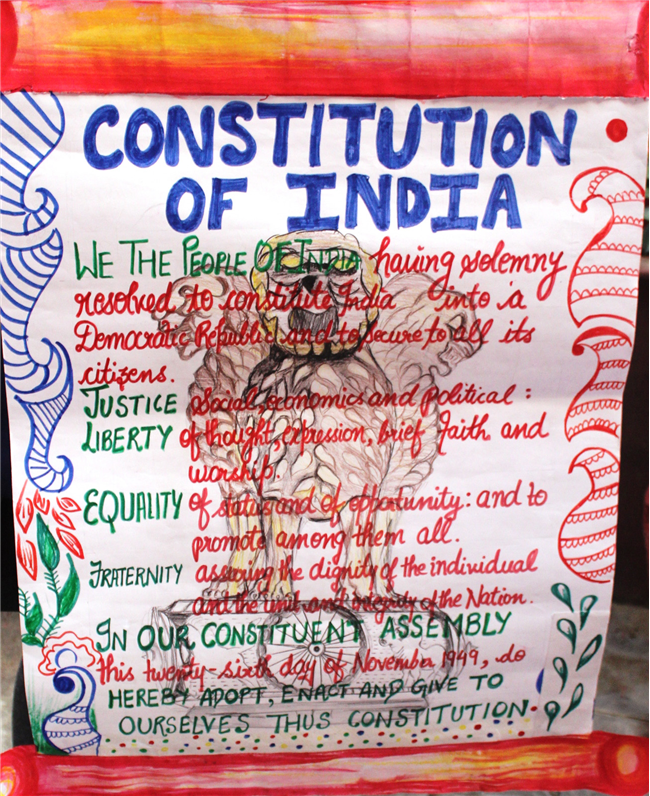 CONSTITUTION
OF INDIA
WE THE PEOPLE OF INDIA having solemny
resolved to constitute India into a
Democratic Republic and to secure to all its
citizens.
JUSTICE Social, economics and political :
LIBERTY of thought, expression, brief faith and
worship.
EQUALITY of status and of opportunity: and to
promote among them all.
FRATERNITY assuring the dignity of the individual
and the unit and integrity of the Nation.
IN OUR CONSTITUENT ASSEMBLY
this twenty-sixth day of November 1949, do
HEREBY ADOPT, ENACT AND GIVE TO
OURSELVES THUS CONSTITUTION.